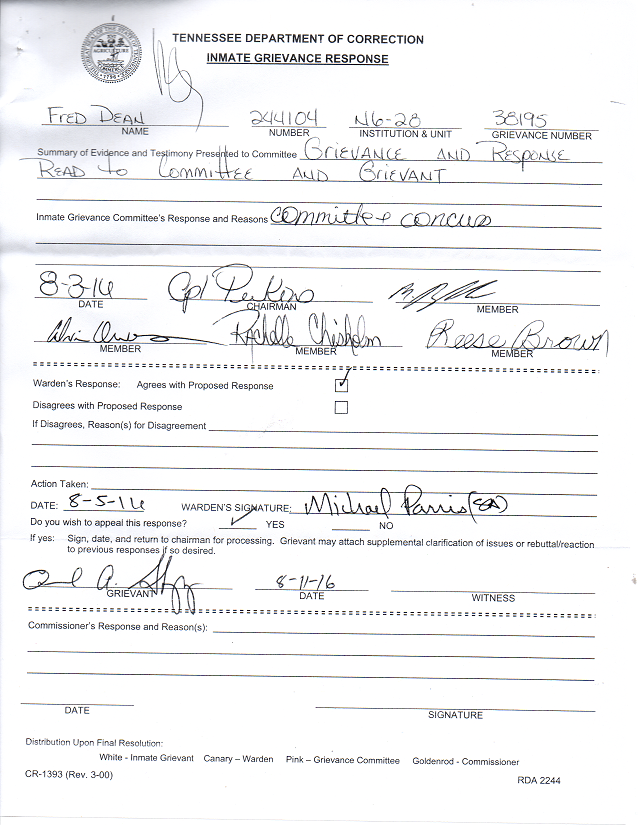 TENNESSEE DEPARTMENT OF CORRECTION
INMATE GRIEVANCE RESPONSE
AGRICULTURE
1796
FRED DEAN 244104 N6-28 38195
NAME NUMBER INSTITUTION & UNIT GRIEVANCE NUMBER
Summary of Evidence and Testimony Presented to Committee GRIEVANCE AND RESPONSE
READ to COMMITTEE AND GRIEVANT
Inmate Grievance Committee's Response and Reasons committee concurs
8-3-16 Cpl Perkins
DATE CHAIRMAN MEMBER
Rachelle Chisholm Reese Brown
MEMBER MEMBER MEMBER
Warden's Response: Agrees with Proposed Response
Disagrees with Proposed Response
If Disagrees, Reason(s) for Disagreement
Action Taken:
DATE: 8-5-16 WARDEN'S SIGNATURE: Michael Parris
Do you wish to appeal this response? YES NO
If yes: Sign, date, and return to chairman for processing. Grievant may attach supplemental clarification of issues or rebuttal/reaction
to previous responses if so desired.
8-11-16
GRIEVANT DATE WITNESS
Commissioner's Response and Reason(s):
DATE SIGNATURE
Distribution Upon Final Resolution:
White - Inmate Grievant Canary – Warden Pink – Grievance Committee Goldenrod - Commissioner
CR-1393 (Rev. 3-00) RDA 2244